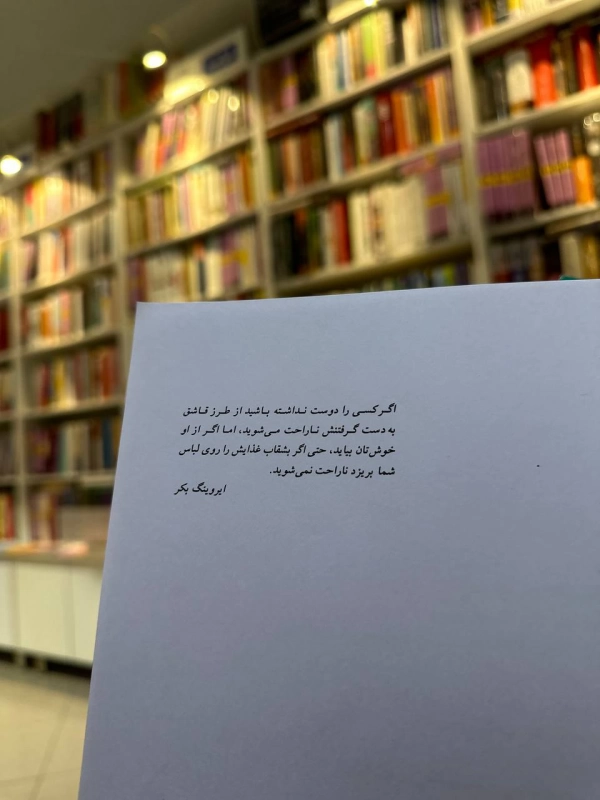 اگر کسی را دوست نداشته باشید از طرز قاشق
به دست گرفتنش ناراحت می‌شوید، اما اگر از او
خوش‌تان بیاید، حتی اگر بشقاب غذایش را روی لباس
شما بریزد ناراحت نمی‌شوید.
ایروینگ بکر